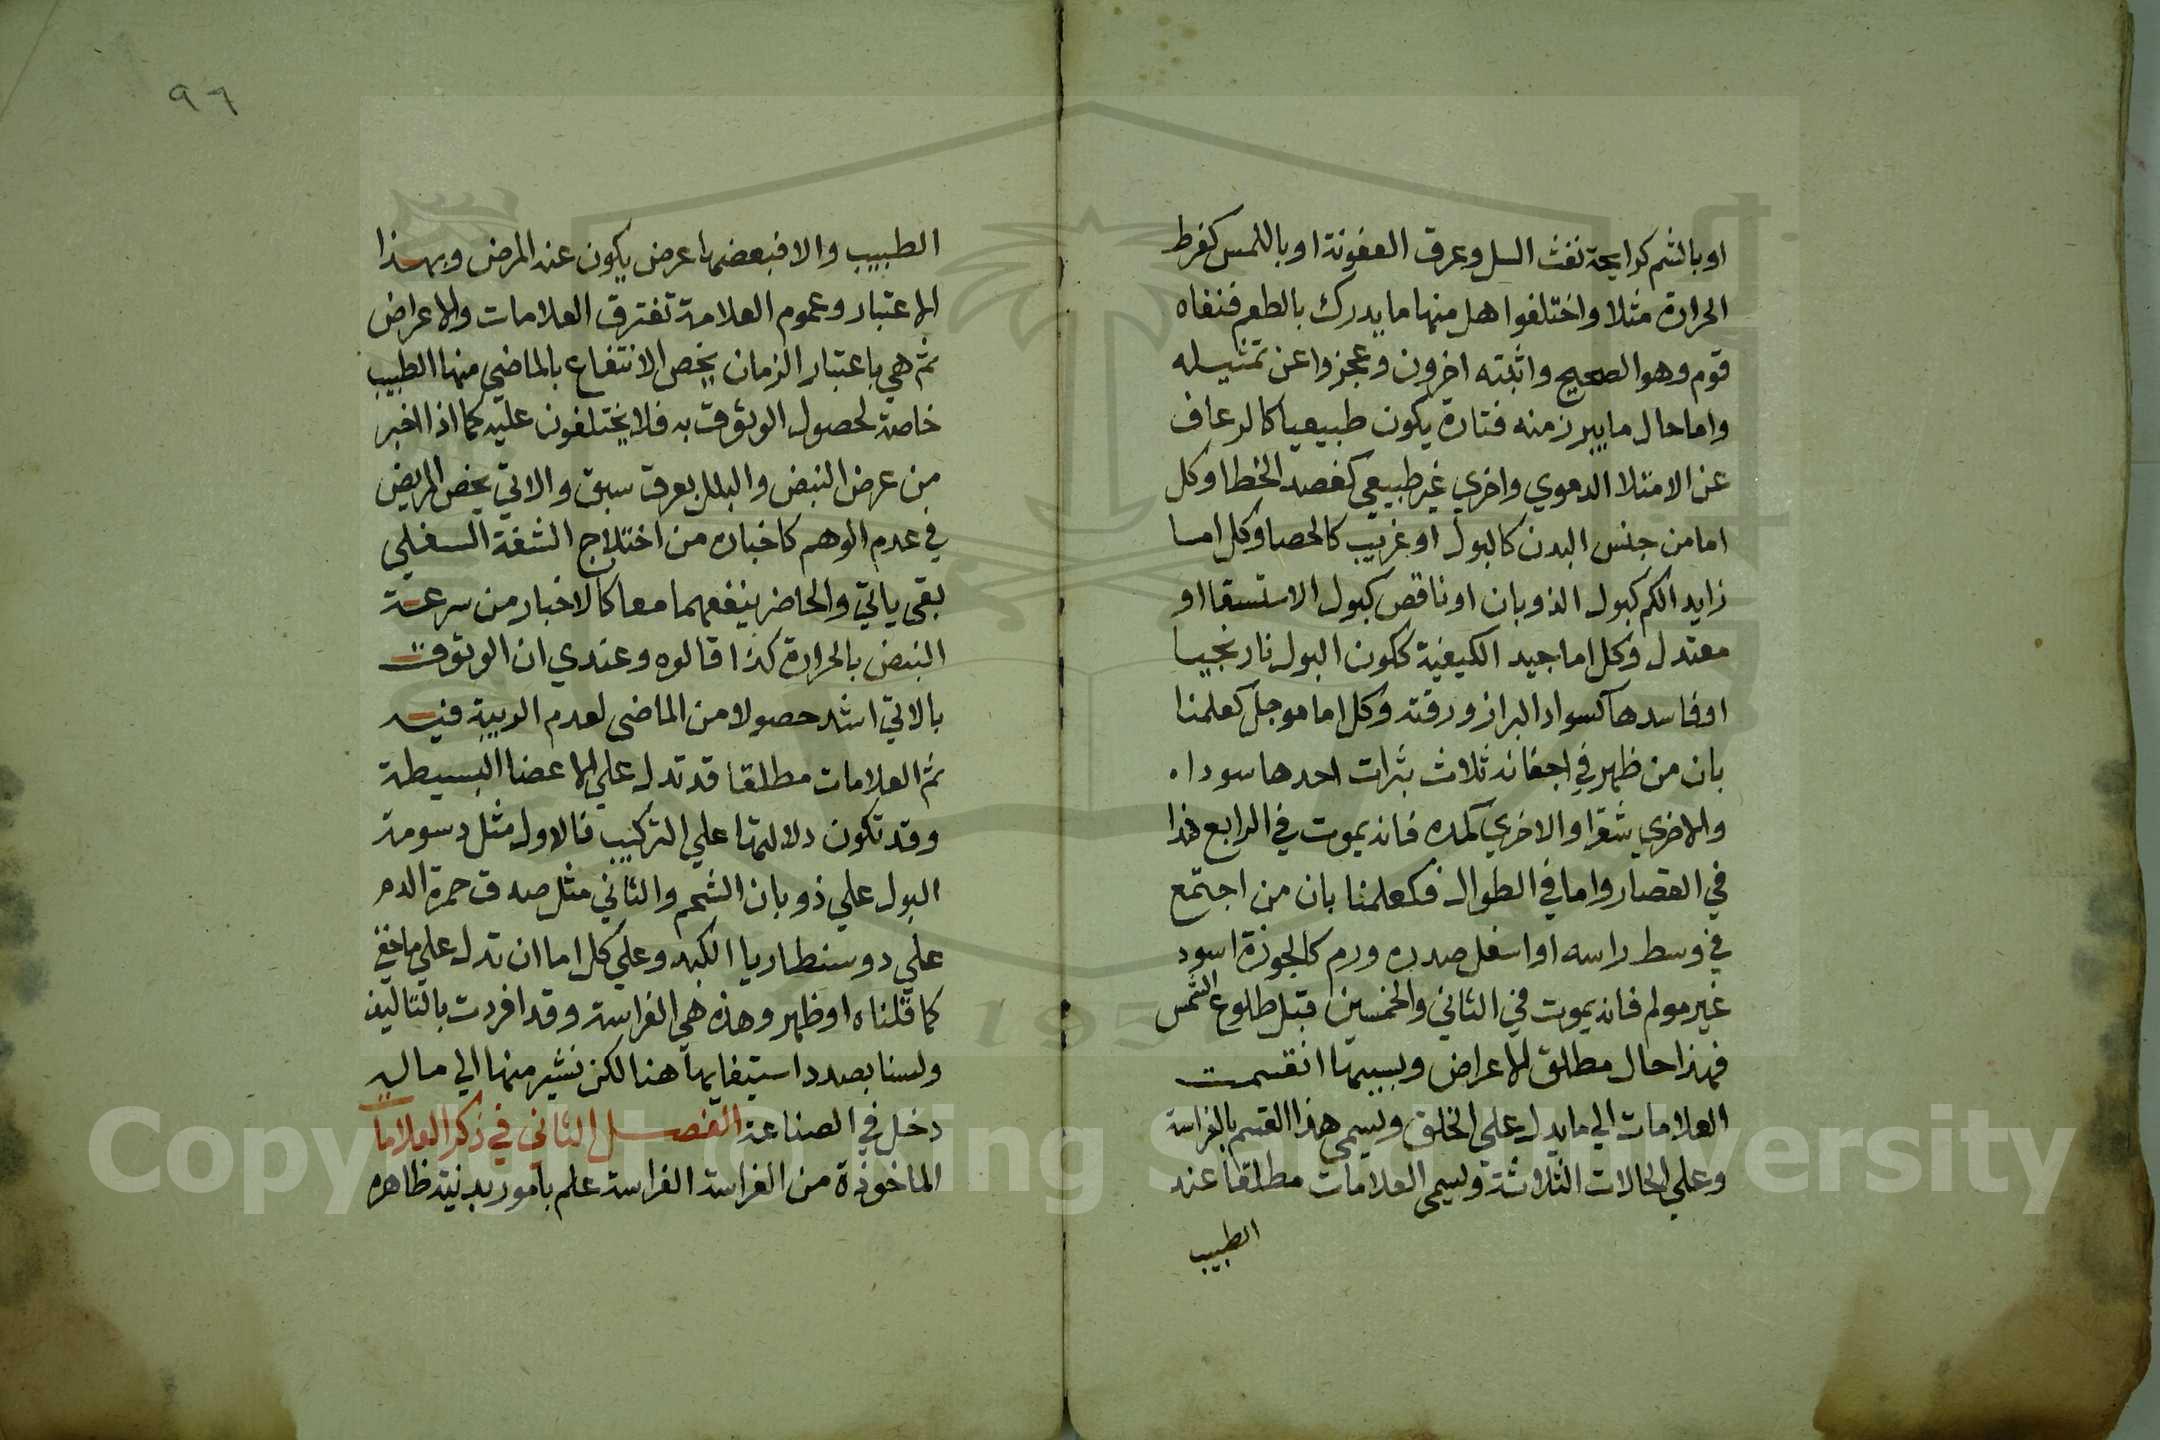 اوبالشم كرايحة نفث السل وعرق العفونة اوباللمس كفرط
الحرارة مثلا واختلفوا هل منها ما يدرك بالطعم فنفاه
قوم وهو الصحيح واثبته اخرون وعجزوا عن تمثيله
واما حال ما يبرز منه فتارة يكون طبيعيا كالرعاف
عن الامتلا الدموي واخري غير طبيعي كفصد الخطا وكل
اما من جنس البدن كالبول او غريب كالحصا وكل اما
زايد الكم كبول الذوبان او ناقص كبول الاستسقا او
معتدل وكل اما جيد الكيفية ككون البول نارنجيا
او فاسدها كسواد البراز ورقته وكل اما موجل كعلمنا
بان من ظهر في اجفانه ثلاث بثرات احدها سودا
والاخري شقرا والاخري كمده فانه يموت في الرابع هذا
في القصار واما في الطوال فكعلمنا بان من اجتمع
في وسط راسه او اسفل صدره ورم كالجوزة اسود
غير مولم فانه يموت في الثاني والخمسين قبل طلوع الشمس
فهذا حال مطلق الاعراض وبسببها انقسمت
العلامات الي ما يدل علي الخلق ويسمي هذا القسم بالفراسة
وعلي الحالات الثلاثة ويسمي العلامات مطلقا عند
الطبيب
٩٦
الطبيب والا فبعضها عرض يكون عند المرض وبهذا
الاعتبار وعموم العلامة تفترق العلامات والاعراض
ثم هي باعتبار الزمان يخص الانتفاع بالماضي منها الطبيب
خاصة لحصول الوثوق به فلا يختلفون عليه كما اذا اخبر
من عرض النبض والبلل بعرق سبق والاتي يخص المريض
في عدم الوهم كاخباره من اختلاج الشفة السفلي
بقي ياتي والحاضر ينفعهما معا كالاخبار من سرعة
النبض بالحرارة كذا قالوه وعندي ان الوثوق
بالاتي اشد حصولا من الماضي لعدم الريبة فيه
ثم العلامات مطلقا قد تدل علي الاعضا البسيطة
وقد تكون دلالتها علي التركيب فالاول مثل دسومة
البول علي ذوبان الشحم والثاني مثل صدق حمرة الدم
علي دوسنطاريا الكبد وعلي كل اما ان تدل علي ما خفي
كما قلناه او ظهر وهذه هي الفراسة وقد افردت بالتاليف
ولسنا بصدد استيفايها هنا لكن نشير منها الي ما له
دخل في الصناعة الفصل الثاني في ذكر العلامات
الماخوذة من الفراسة الفراسة علم بامور بدنية ظاهره
Copyright © King Saud University
195